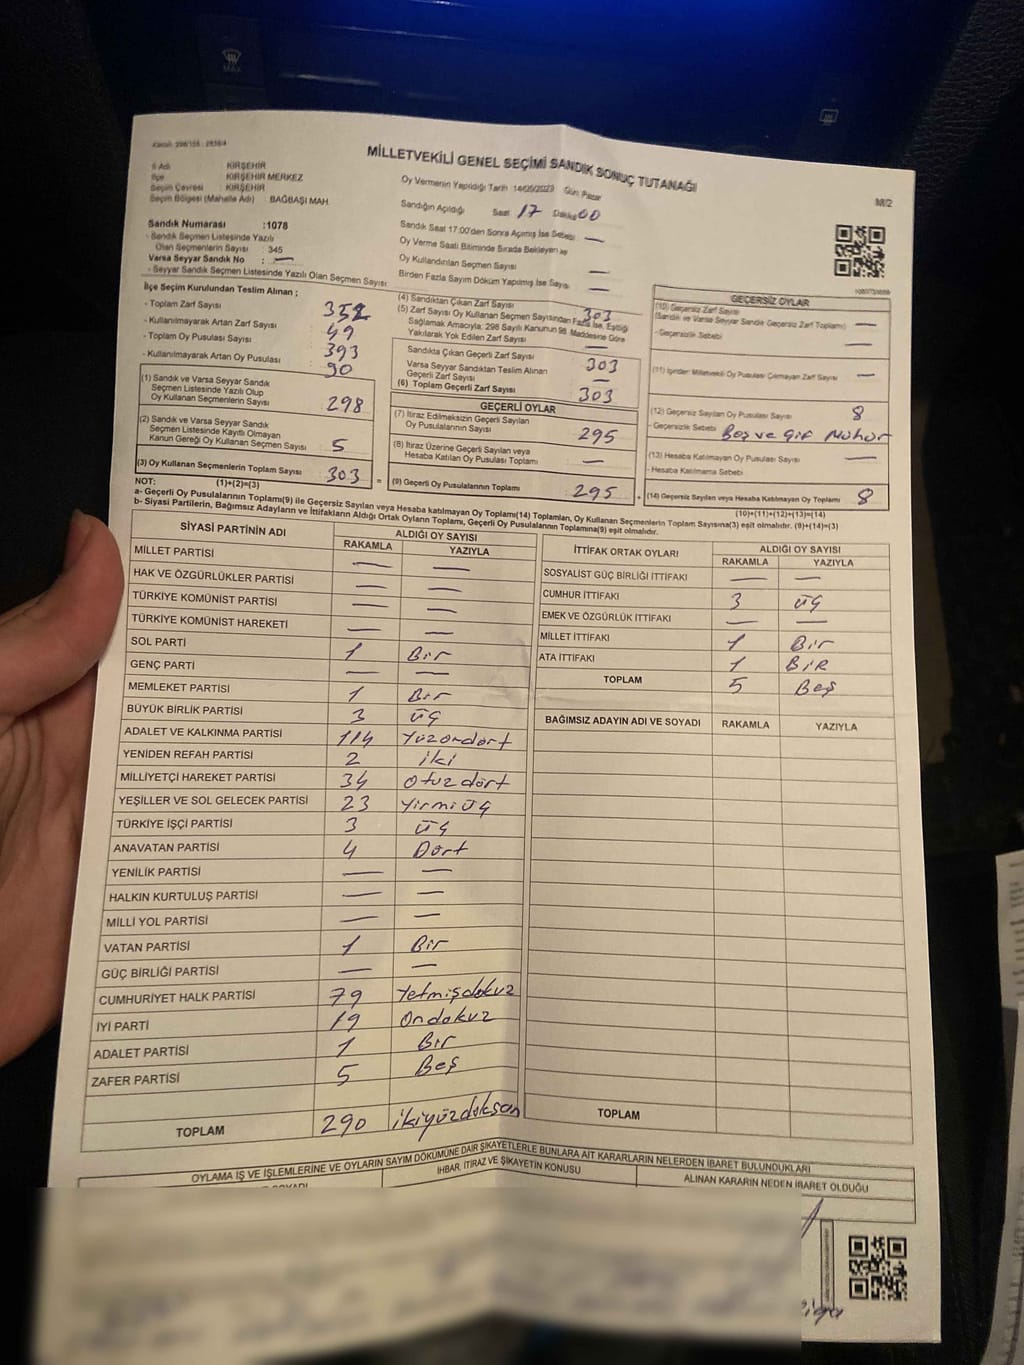 MAX
MİLLETVEKİLİ GENEL SEÇİMİ SANDIK SONUÇ TUTANAĞI
M/2
İl Adı KIRŞEHİR
İlçe KIRŞEHİR MERKEZ
Seçim Çevresi : KIRŞEHİR
Seçim Bölgesi (Mahalle Adı) BAĞBAŞI MAH.
Sandık Numarası :1078
- Sandık Seçmen Listesinde Yazılı
Olan Seçmenlerin Sayısı : 345
Varsa Seyyar Sandık No : —
- Seyyar Sandık Seçmen Listesinde Yazılı Olan Seçmen Sayısı
Oy Vermenin Yapıldığı Tarih 14/05/2023 Gün Pazar
Sandığın Açıldığı Saat 17 Dakika 00
Sandık Saat 17:00'den Sonra Açılmış İse Sebebi —
Oy Verme Saati Bitiminde Sırada Bekleyen ve
Oy Kullandırılan Seçmen Sayısı —
Birden Fazla Sayım Döküm Yapılmış İse Sayısı —
İlçe Seçim Kurulundan Teslim Alınan ;
- Toplam Zarf Sayısı 352
- Kullanılmayarak Artan Zarf Sayısı 49
- Toplam Oy Pusulası Sayısı 393
- Kullanılmayarak Artan Oy Pusulası 90
(1) Sandık ve Varsa Seyyar Sandık
Seçmen Listesinde Yazılı Olup
Oy Kullanan Seçmenlerin Sayısı 298
(2) Sandık ve Varsa Seyyar Sandık
Seçmen Listesinde Kayıtlı Olmayan
Kanun Gereği Oy Kullanan Seçmen Sayısı 5
(3) Oy Kullanan Seçmenlerin Toplam Sayısı 303
NOT: (1)+(2)=(3)
(4) Sandıktan Çıkan Zarf Sayısı 303
(5) Zarf Sayısı Oy Kullanan Seçmen Sayısından Fazla İse, Eşitliği
Sağlamak Amacıyla; 298 Sayılı Kanunun 98. Maddesine Göre
Yakılarak Yok Edilen Zarf Sayısı —
Sandıkta Çıkan Geçerli Zarf Sayısı 303
Varsa Seyyar Sandıktan Teslim Alınan
Geçerli Zarf Sayısı —
(6) Toplam Geçerli Zarf Sayısı 303
GEÇERLİ OYLAR
(7) İtiraz Edilmeksizin Geçerli Sayılan
Oy Pusulalarının Sayısı 295
(8) İtiraz Üzerine Geçerli Sayılan veya
Hesaba Katılan Oy Pusulası Toplamı —
= (9) Geçerli Oy Pusulalarının Toplamı 295
GEÇERSİZ OYLAR
(10) Geçersiz Zarf Sayısı
(Sandık ve Varsa Seyyar Sandık Geçersiz Zarf Toplamı) —
- Geçersizlik Sebebi —
(11) İçinden Milletvekili Oy Pusulası Çıkmayan Zarf Sayısı —
(12) Geçersiz Sayılan Oy Pusulası Sayısı 8
- Geçersizlik Sebebi Boş ve Çif Mühür
(13) Hesaba Katılmayan Oy Pusulası Sayısı —
- Hesaba Katılmama Sebebi
+ (14) Geçersiz Sayılan veya Hesaba Katılmayan Oy Toplamı 8
(10)+(11)+(12)+(13)=(14)
a- Geçerli Oy Pusulalarının Toplamı(9) ile Geçersiz Sayılan veya Hesaba katılmayan Oy Toplamı(14) Toplamları, Oy Kullanan Seçmenlerin Toplam Sayısına(3) eşit olmalıdır. (9)+(14)=(3)
b- Siyasi Partilerin, Bağımsız Adayların ve İttifakların Aldığı Ortak Oyların Toplamı, Geçerli Oy Pusulalarının Toplamına(9) eşit olmalıdır.
SİYASİ PARTİNİN ADI ALDIĞI OY SAYISI
RAKAMLA YAZIYLA
MİLLET PARTİSİ — —
HAK VE ÖZGÜRLÜKLER PARTİSİ — —
TÜRKİYE KOMÜNİST PARTİSİ — —
TÜRKİYE KOMÜNİST HAREKETİ — —
SOL PARTİ 1 Bir
GENÇ PARTİ — —
MEMLEKET PARTİSİ 1 Bir
BÜYÜK BİRLİK PARTİSİ 3 üç
ADALET VE KALKINMA PARTİSİ 114 Yüzondört
YENİDEN REFAH PARTİSİ 2 iki
MİLLİYETÇİ HAREKET PARTİSİ 34 Otuzdört
YEŞİLLER VE SOL GELECEK PARTİSİ 23 Yirmiüç
TÜRKİYE İŞÇİ PARTİSİ 3 üç
ANAVATAN PARTİSİ 4 Dört
YENİLİK PARTİSİ — —
HALKIN KURTULUŞ PARTİSİ — —
MİLLİ YOL PARTİSİ — —
VATAN PARTİSİ 1 Bir
GÜÇ BİRLİĞİ PARTİSİ — —
CUMHURİYET HALK PARTİSİ 79 Yetmişdokuz
İYİ PARTİ 19 Ondokuz
ADALET PARTİSİ 1 Bir
ZAFER PARTİSİ 5 Beş
TOPLAM 290 ikiyüzdoksan
İTTİFAK ORTAK OYLARI ALDIĞI OY SAYISI
RAKAMLA YAZIYLA
SOSYALİST GÜÇ BİRLİĞİ İTTİFAKI — —
CUMHUR İTTİFAKI 3 üç
EMEK VE ÖZGÜRLÜK İTTİFAKI — —
MİLLET İTTİFAKI 1 Bir
ATA İTTİFAKI 1 BİR
TOPLAM 5 Beş
BAĞIMSIZ ADAYIN ADI VE SOYADI RAKAMLA YAZIYLA
TOPLAM
OYLAMA İŞ VE İŞLEMLERİNE VE OYLARIN SAYIM DÖKÜMÜNE DAİR ŞİKAYETLERLE BUNLARA AİT KARARLARIN NELERDEN İBARET BULUNDUKLARI
İHBAR, İTİRAZ VE ŞİKAYETİN KONUSU
ALINAN KARARIN NEDEN İBARET OLDUĞU